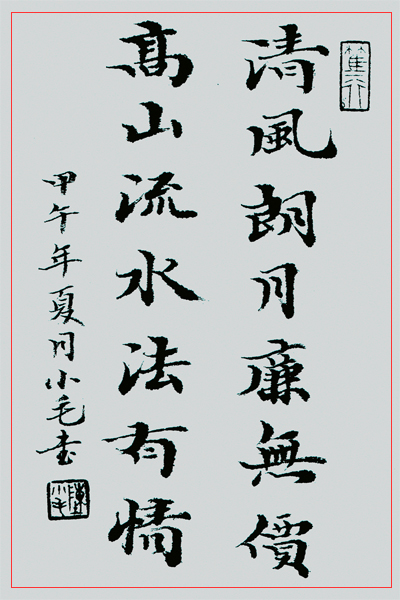 清風朗月廉無價
髙山流水法有情
甲午年夏月小毛書